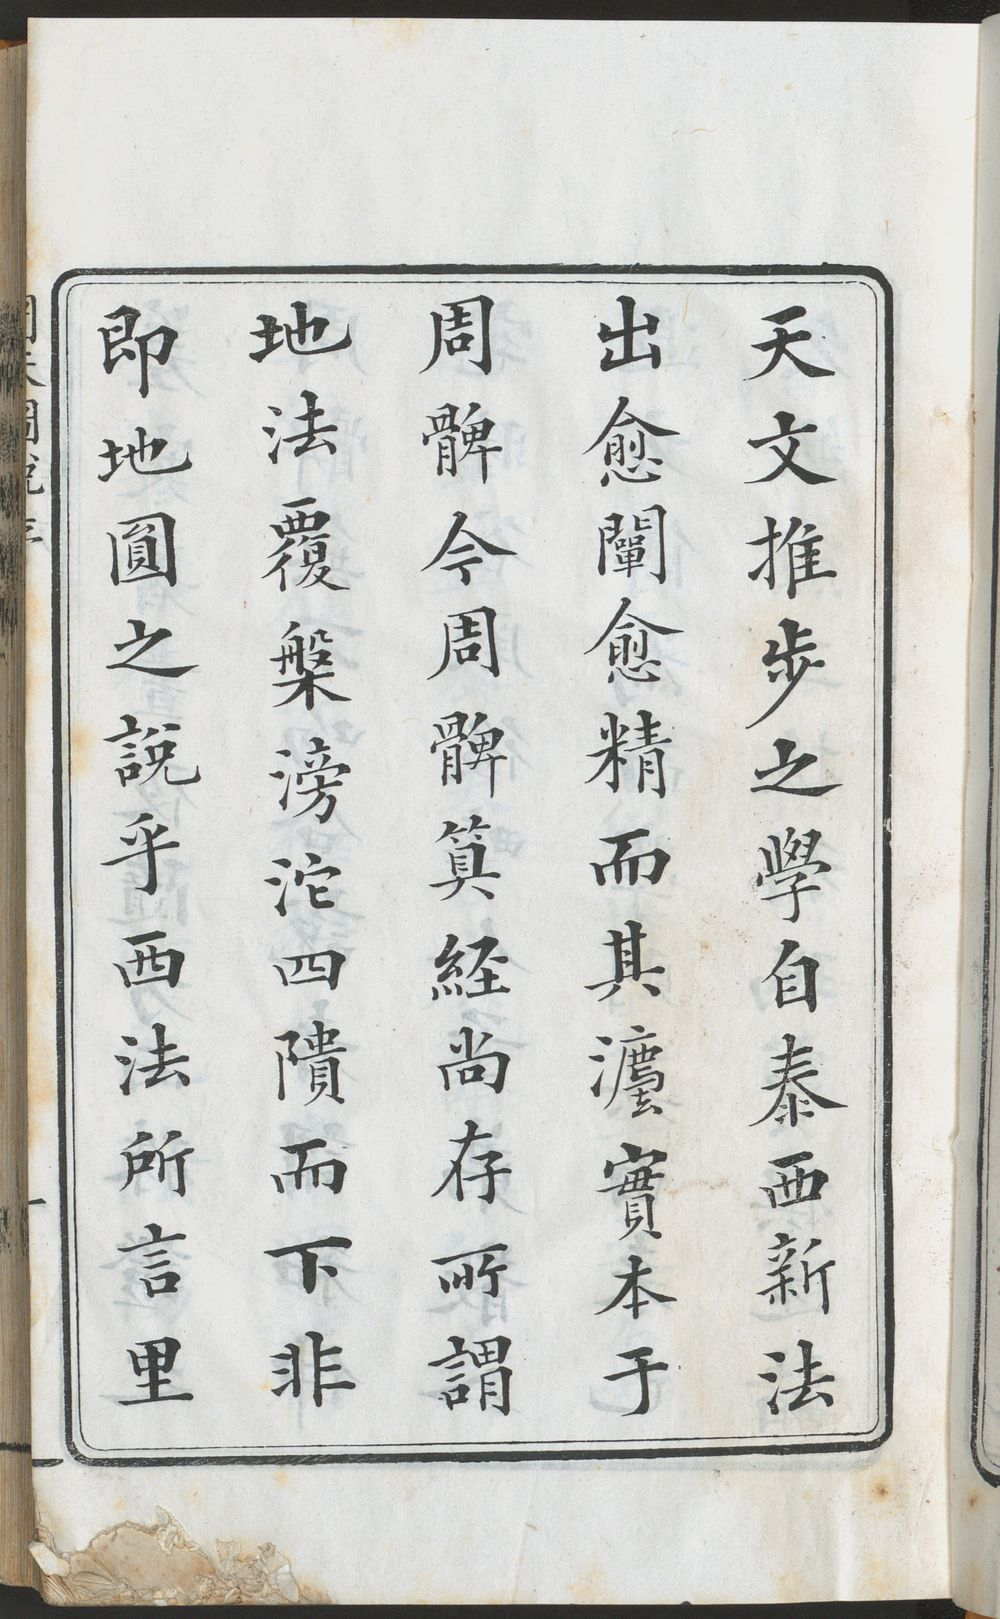 天文推步之學自泰西新法
出愈闡愈精而其灋實本于
周髀今周髀算経尚存所謂
地法覆槃滂沱四隤而下非
即地圓之說乎西法所言里